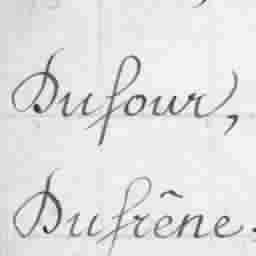 Dufour,
Dufrêne.